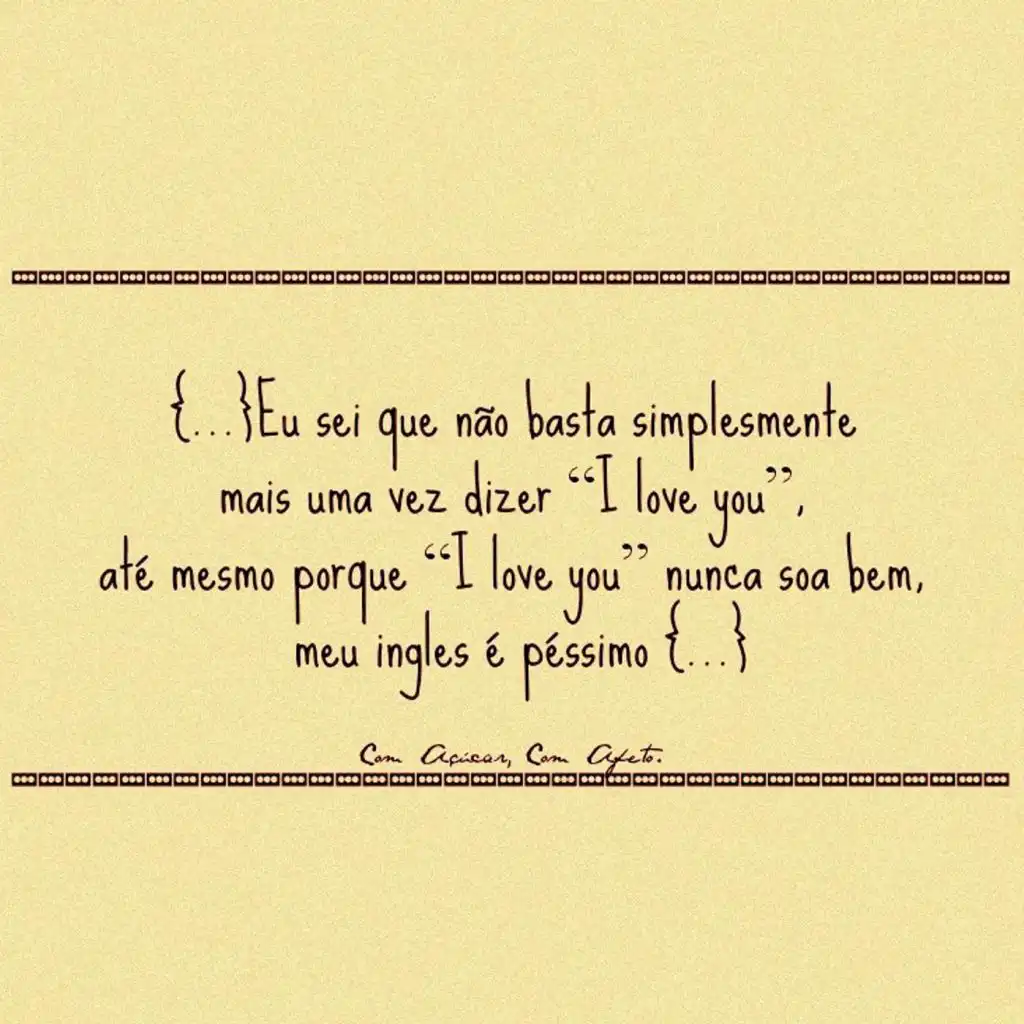 {...}Eu sei que não basta simplesmente
mais uma vez dizer “I love you”,
até mesmo porque “I love you” nunca soa bem,
meu ingles é péssimo {...}
Com Açúcar, Com Afeto.